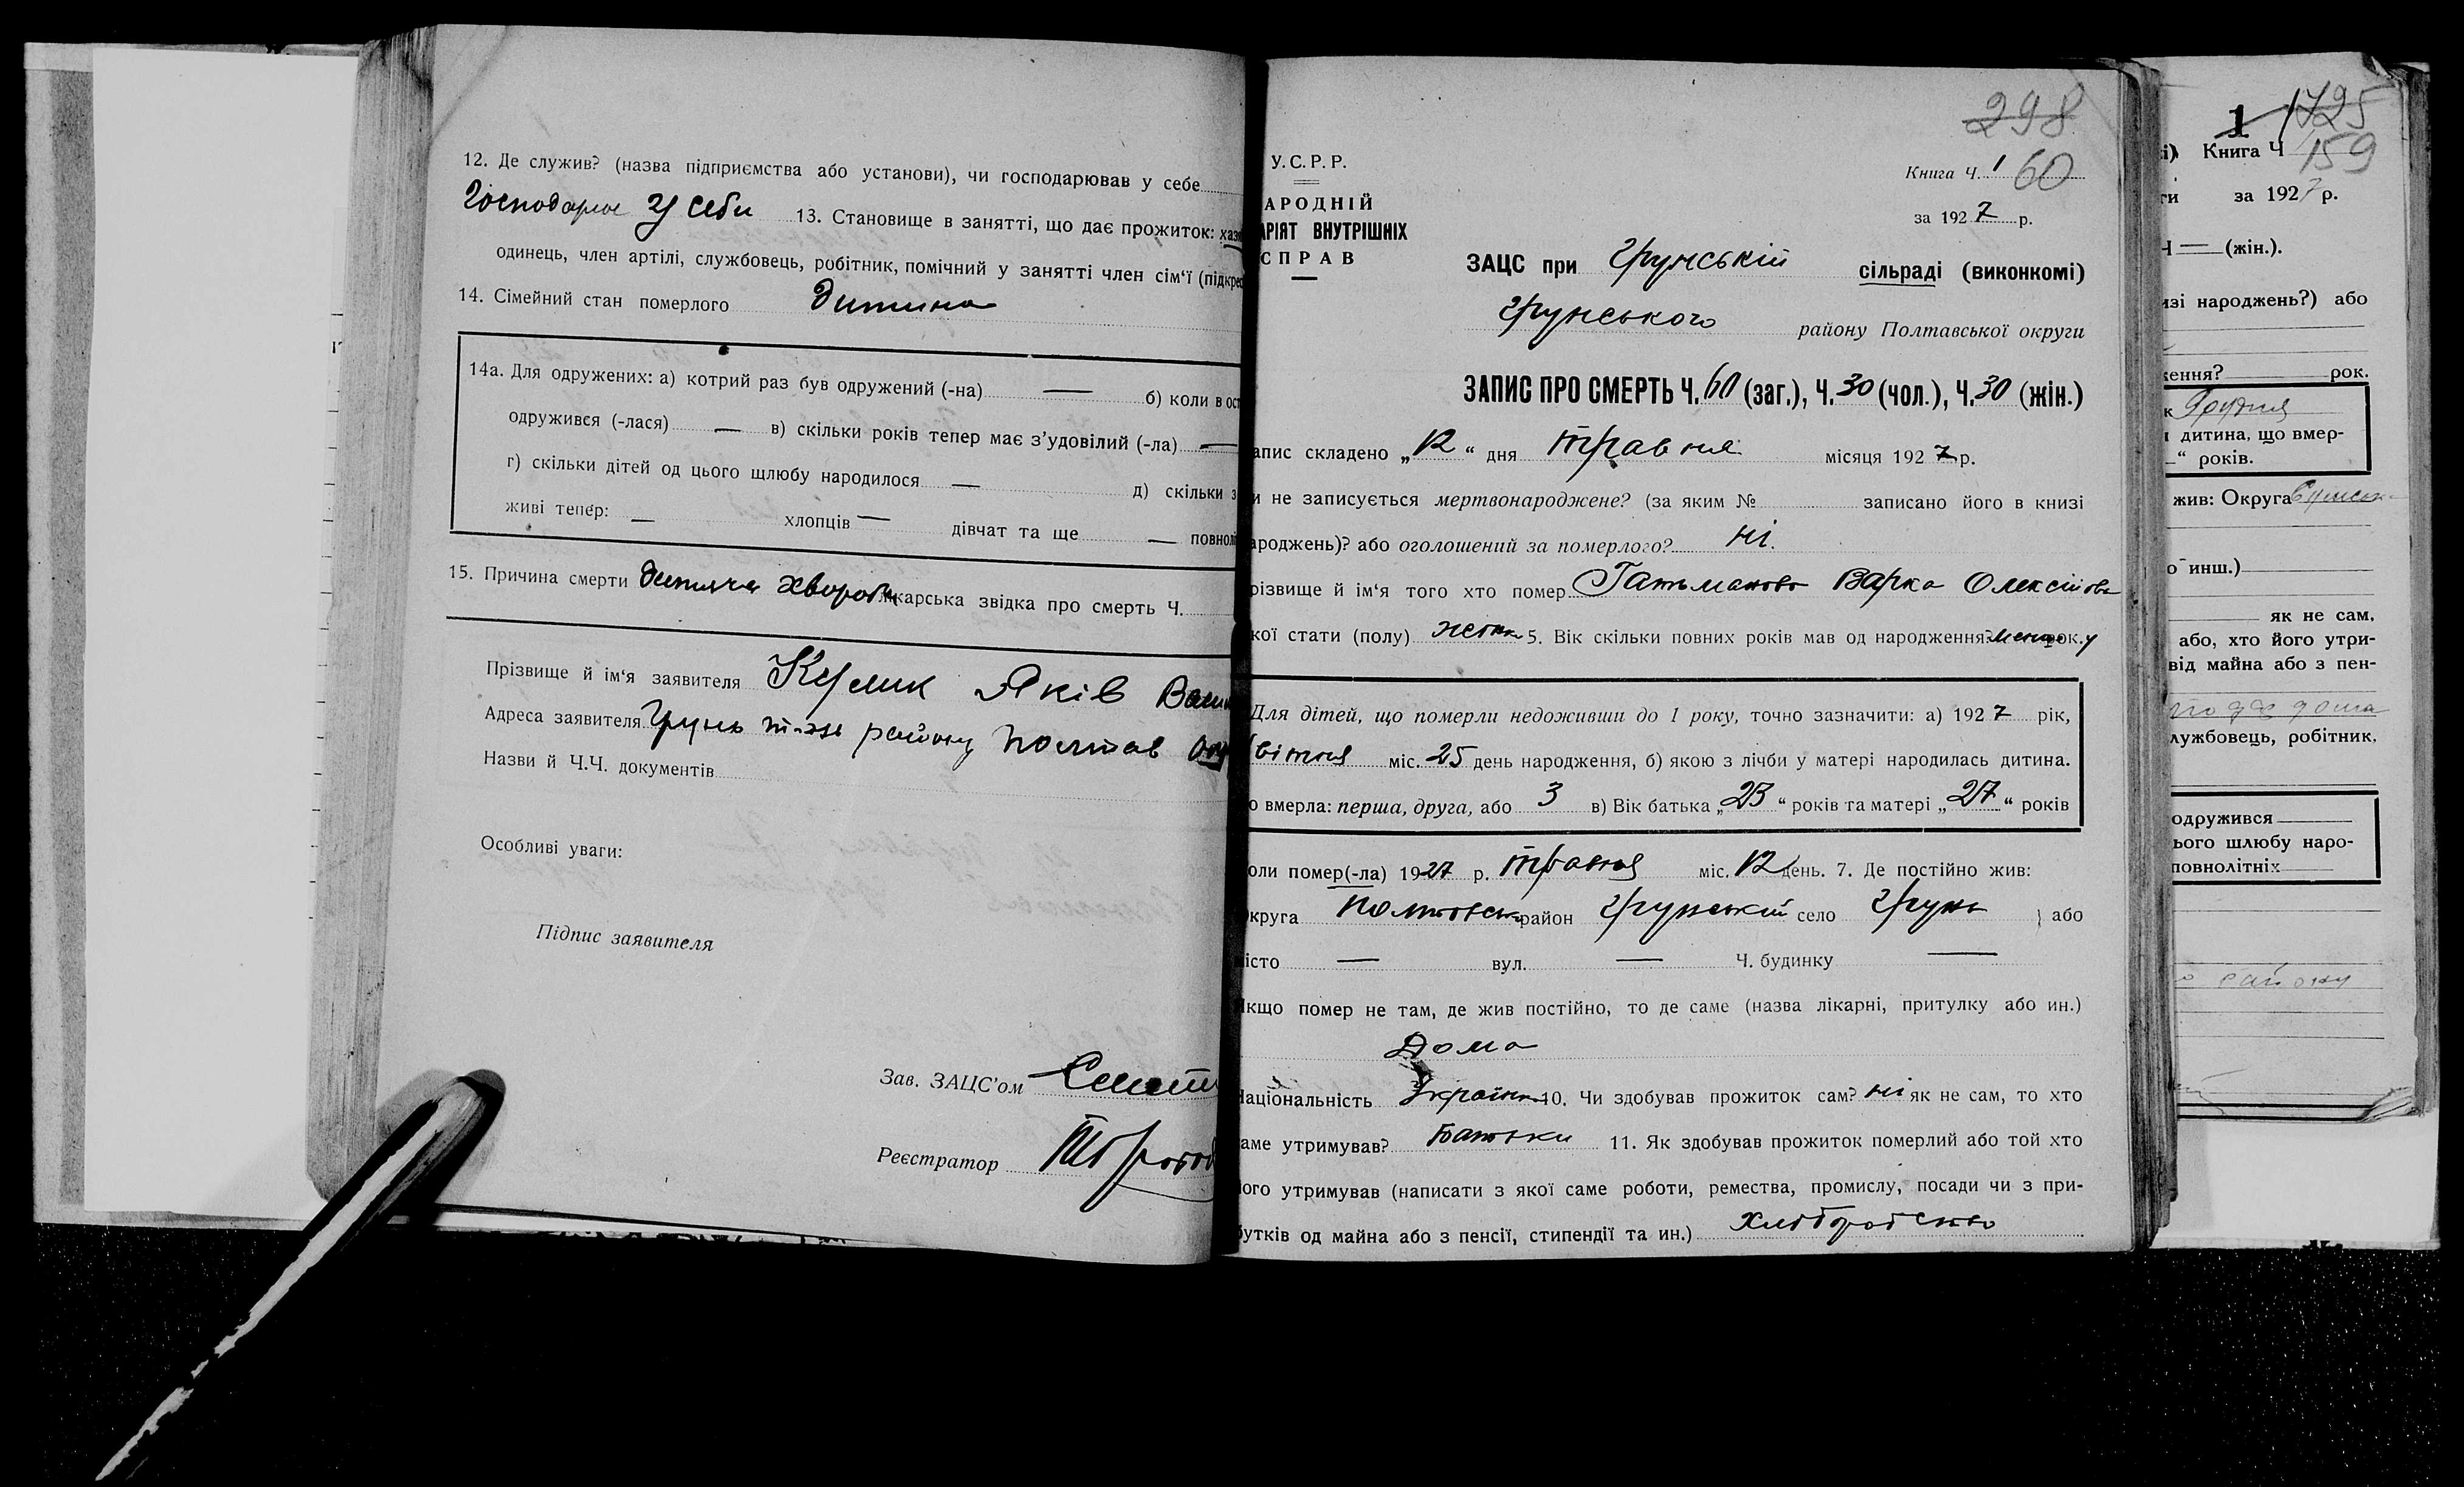 12. Де служив? (назва підприємства або установи), чи господарював у себе
Господарює у себи 13. Становище в занятті, що дає прожиток: хаз
одинець, член артілі, службовець, робітник, помічний у занятті член сім'ї (підкре
14. Сімейний стан померлого Дитина
14а. Для одружених: а) котрий раз був одружений (-на) — б) коли в ост
одружився (-лася) — в) скільки років тепер має з'удовілий (-ла) —
г) скільки дітей од цього щлюбу народилося — д) скільки з
живі тепер: — хлопців — дівчат та ще — повнолі
15. Причина смерти дитяча хвороба лікарська звідка про смерть Ч.
Прізвище й ім'я заявителя Яків
Адреса заявителя Грунь району Полтав Окр
Назви й Ч.Ч. документів
Особливі уваги:
Підпис заявителя
Зав. ЗАЦС'ом
Реєстратор
298
У.С.Р.Р.
Книга Ч. 1 60
АРОДНІЙ
за 1927 р.
АРІЯТ ВНУТРІШНІХ
СПРАВ
ЗАЦС при Грунській сільраді (виконкомі)
Грунського району Полтавської округи
ЗАПИС ПРО СМЕРТЬ Ч. 60 (заг.), Ч. 30 (чол.), Ч. 30 (жін.)
апис складено „12“ дня травня місяця 1927 р.
и не записується мертвонароджене? (за яким № записано його в книзі
ароджень)? або оголошений за померлого? ні.
різвище й ім'я того хто помер Варка Олексійова
кої стати (полу) 5. Вік скільки повних років мав од народження? рок.
Для дітей, що померли недоживши до 1 року, точно зазначити: а) 1927 рік,
вітня міс. 25 день народження, б) якою з лічби у матері народилась дитина.
о вмерла: перша, друга, або 3 в) Вік батька „23“ років та матері „27“ років
оли помер(-ла) 1927 р. травня міс. 12 день. 7. Де постійно жив:
круга Полтавськ район Грунський село Грунь } або
істо — вул. — Ч. будинку —
кщо помер не там, де жив постійно, то де саме (назва лікарні, притулку або ин.)
Дома
аціональність Українк 10. Чи здобував прожиток сам? ні як не сам, то хто
аме утримував? Батьки 11. Як здобував прожиток померлий або той хто
ого утримував (написати з якої саме роботи, ремества, промислу, посади чи з при-
бутків од майна або з пенсії, стипендії та ин.) Хліборобство
1 1725
Книга Ч 159
ти за 1927 р.
Ч — (жін.).
изі народжень?) або
ження? рок.
Грудня
дитина, що вмер-
“ років.
жив: Округа
о инш.)
як не сам,
або, хто його утри-
від майна або з пен-
лужбовець, робітник,
одружився
ього шлюбу наро-
повнолітніх
району